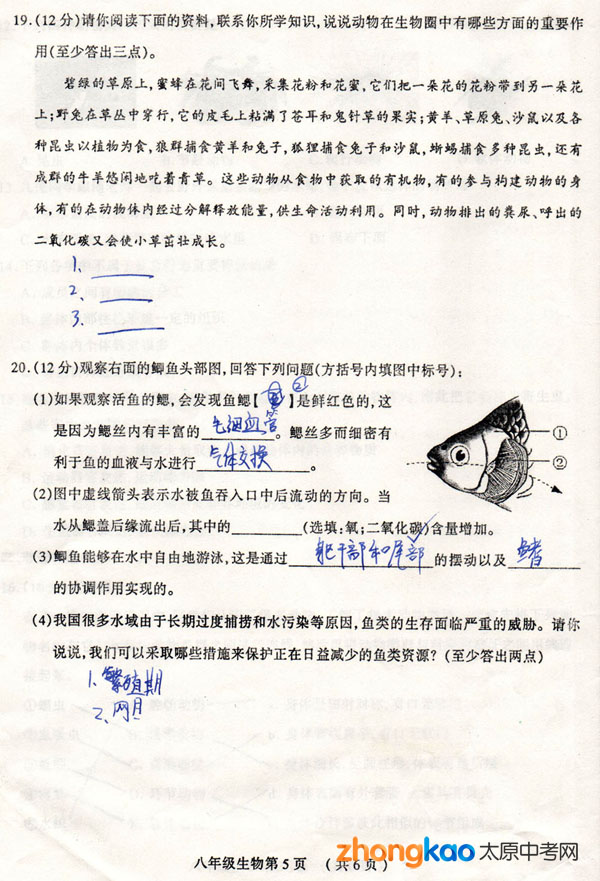 19.(12分)请你阅读下面的资料,联系你所学知识,说说动物在生物圈中有哪些方面的重要作
用(至少答出三点)。
碧绿的草原上,蜜蜂在花间飞舞,采集花粉和花蜜,它们把一朵花的花粉带到另一朵花
上;野兔在草丛中穿行,它的皮毛上粘满了苍耳和鬼针草的果实;黄羊、草原兔、沙鼠以及各
种昆虫以植物为食,狼群捕食黄羊和兔子,狐狸捕食兔子和沙鼠,蜥蜴捕食多种昆虫,还有
成群的牛羊悠闲地吃着青草。这些动物从食物中获取的有机物,有的参与构建动物的身
体,有的在动物体内经过分解释放能量,供生命活动利用。同时,动物排出的粪尿、呼出的
二氧化碳又会使小草茁壮成长。
1、
2、
3、
20.(12分)观察右面的鲫鱼头部图,回答下列问题(方括号内填图中标号):
(1)如果观察活鱼的鳃,会发现鱼鳃【②】是鲜红色的,这
是因为鳃丝内有丰富的毛细血管。鳃丝多而细密有
利于鱼的血液与水进行气体交换。
①
②
(2)图中虚线箭头表示水被鱼吞入口中后流动的方向。当
水从鳃盖后缘流出后,其中的(选填:氧;二氧化碳)含量增加。
(3)鲫鱼能够在水中自由地游泳,这是通过躯干部和尾部的摆动以及鳍
的协调作用实现的。
(4)我国很多水域由于长期过度捕捞和水污染等原因,鱼类的生存面临严重的威胁。请你
说说,我们可以采取哪些措施来保护正在日益减少的鱼类资源?(至少答出两点)
1、繁殖期
2、网具
八年级生物第5页 (共6页)
zhongkao太原中考网